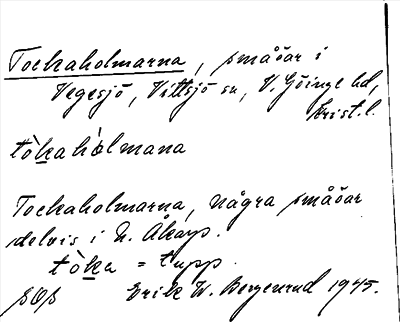 Tockaholmarna, småöar i
Vegesjö, Vittsjö sn, V. Göinge hd,
Krist. l.
tòkahòlmana
Tockaholmarna, några småöar
delvis i N. Åkarp.
tòka = tupp.
Erik W. Bergenrud 1945.